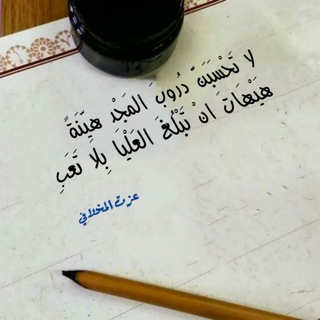 لا تَحْسَبَنَّ دُروبَ المَجْدِ هيِّنَةً
هَيْهَات انْ تَبْلُغَ العَلْيا بِلا تَعَبِ
عزت المخلافي